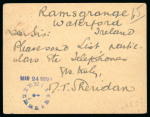 Ramsgrange
Waterford
Ireland
Dear Sir:
Please send List partic-
ulars to Telephones
MAR 24
D. T. Sheridan